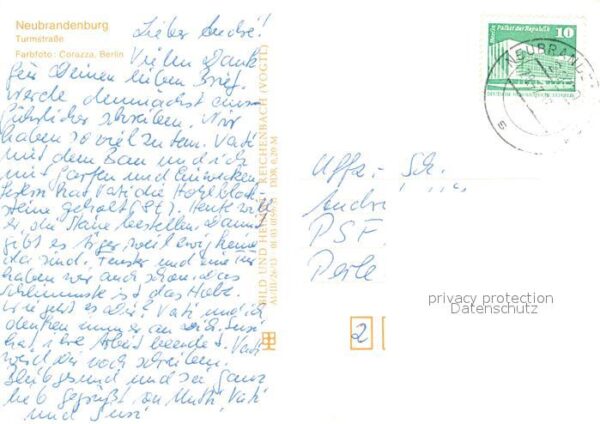 Neubrandenburg
Turmstraße
Farbfoto: Corazza, Berlin
Lieber André!
Vielen Dank
für Deinen lieben Brief.
werde demnächst aus-
führlicher schreiben. Wir
haben so viel zu tun. Vati
mit dem Bau und ich
mit Garten und Einwecken.
hat Vati die Hohlblock-
steine geholt (St). Heute will
er die Steine bestellen. Dann
gibt es Ärger weil ewig keine
da sind. Fenster und eine Tür
haben wir auch schon. Das
schlimmste ist das Holz.
Wie geht es Dir? Vati und ich
denken immer an Dich. Susi
hat ihre Arbeit beendet. Vati
wird Dir noch schreiben.
Bleib gesund und sei ganz
lieb gegrüßt von Mutti, Vati
und Susi
BILD UND HEIMAT REICHENBACH (VOGTL)
A1/III/26/13 DDR 0,20 M
Berlin, Palast der Republik
10
DEUTSCHE DEMOKRATISCHE REPUBLIK
NEUBRAND
Uffz.- Sch.
André
PSF
Perle
2
privacy protection
Datenschutz